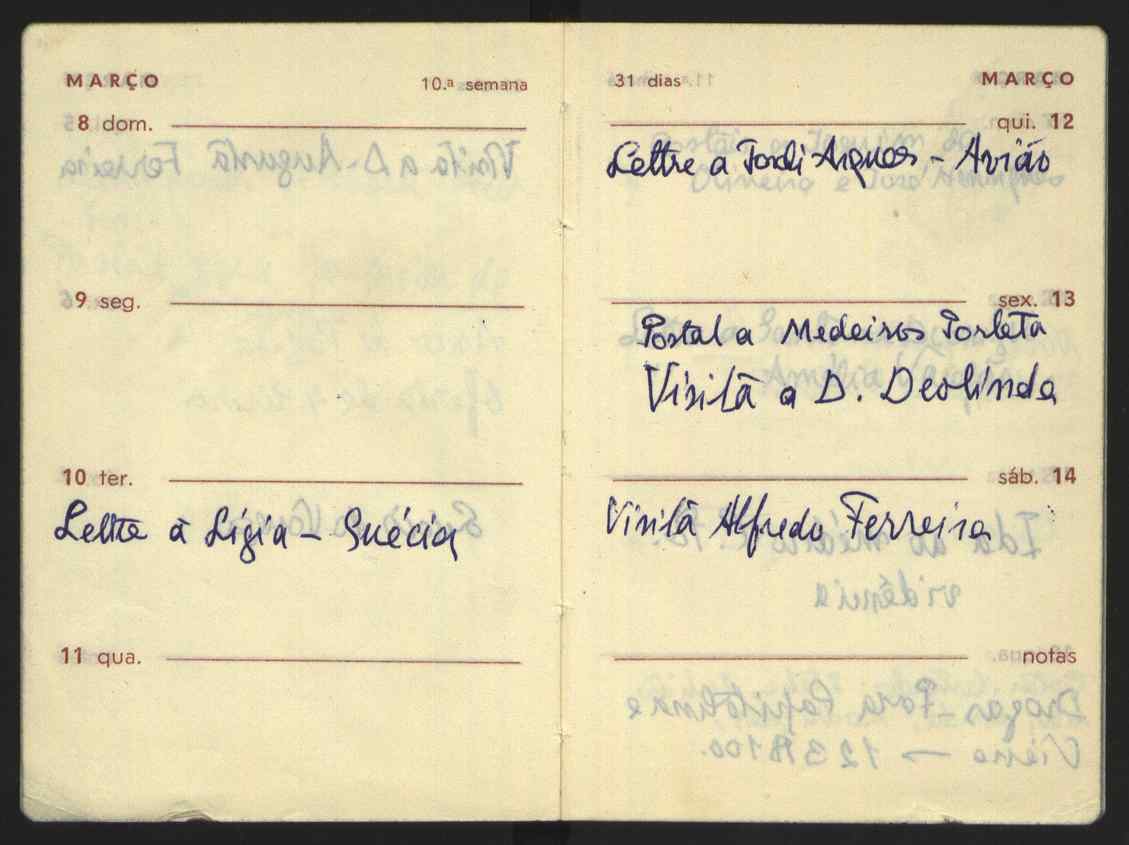 MARÇO 10.ª semana
8 dom.
9 seg.
10 ter.
Lettre a Ligia - Suécia
11 qua.
31 dias MARÇO
qui. 12
Lettre a Jordi - Avião
sex. 13
Postal a Medeiros
Visita a D. Deolinda
sáb. 14
Visita Alfredo Ferreira
notas